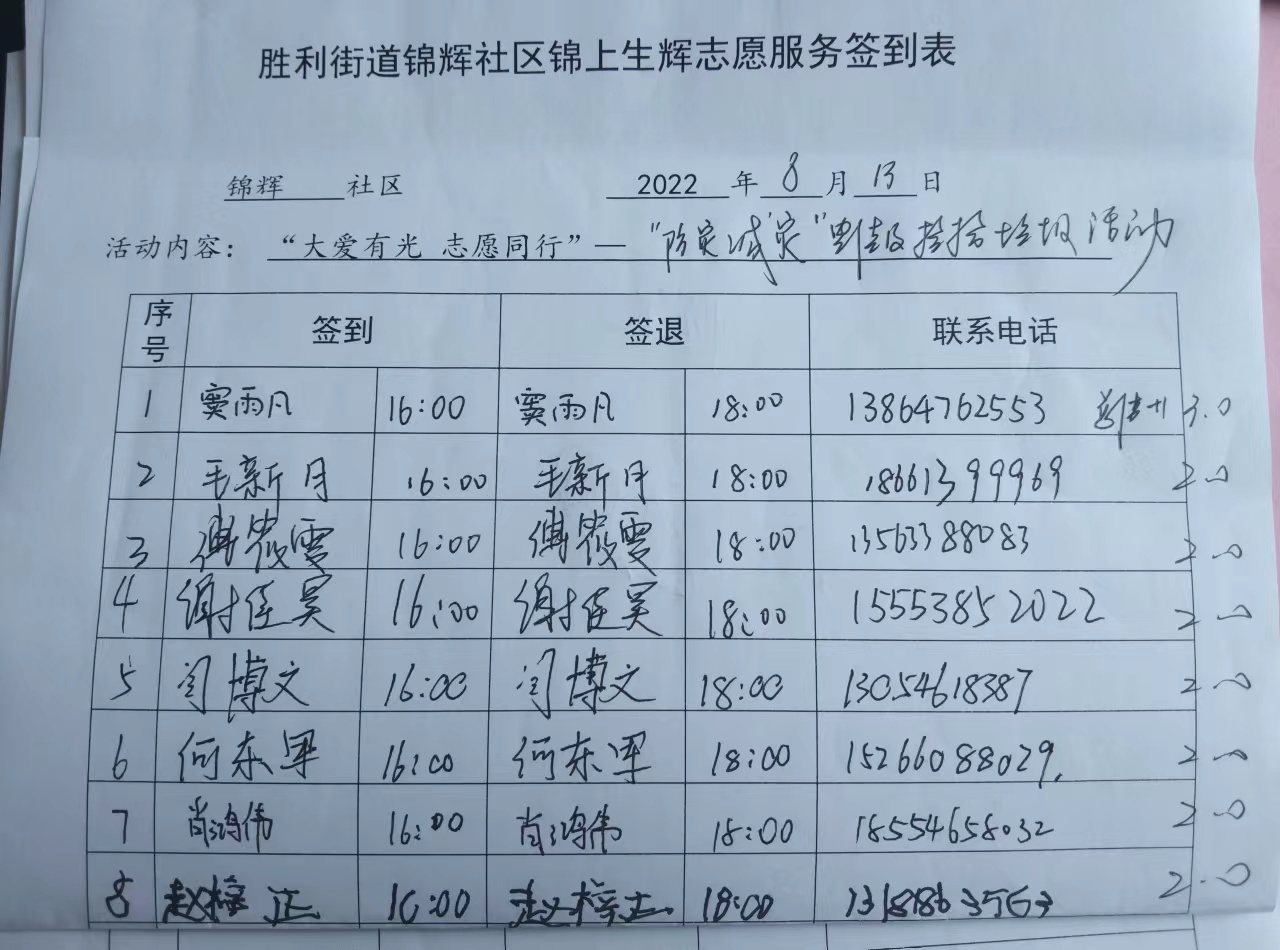 胜利街道锦辉社区锦上生辉志愿服务签到表
锦辉 社区 2022 年 8 月 13 日
活动内容: “大爱有光 志愿同行”— “防灾减灾” 捡拾垃圾活动
序号 签到 签退 联系电话
1 窦雨凡 16:00 窦雨凡 18:00 13864762553 3.0
2 毛新月 16:00 毛新月 18:00 18661399969 2.0
3 傅筱雯 16:00 傅筱雯 18:00 13563388083 2.0
4 谢佳昊 16:00 谢佳昊 18:00 15553852022 2.0
5 闫博文 16:00 闫博文 18:00 13054618387 2.0
6 何东军 16:00 何东军 18:00 15266088029. 2.0
7 肖鸿伟 16:00 肖鸿伟 18:00 18554658032 2.0
8 赵梓 16:00 赵梓 18:00 2.0